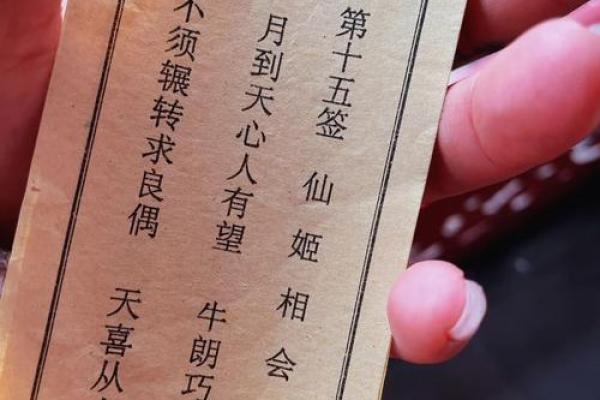 第十五签 仙姬相会
月到天心人有望 牛朗巧
不须辗转求良偶 天喜从